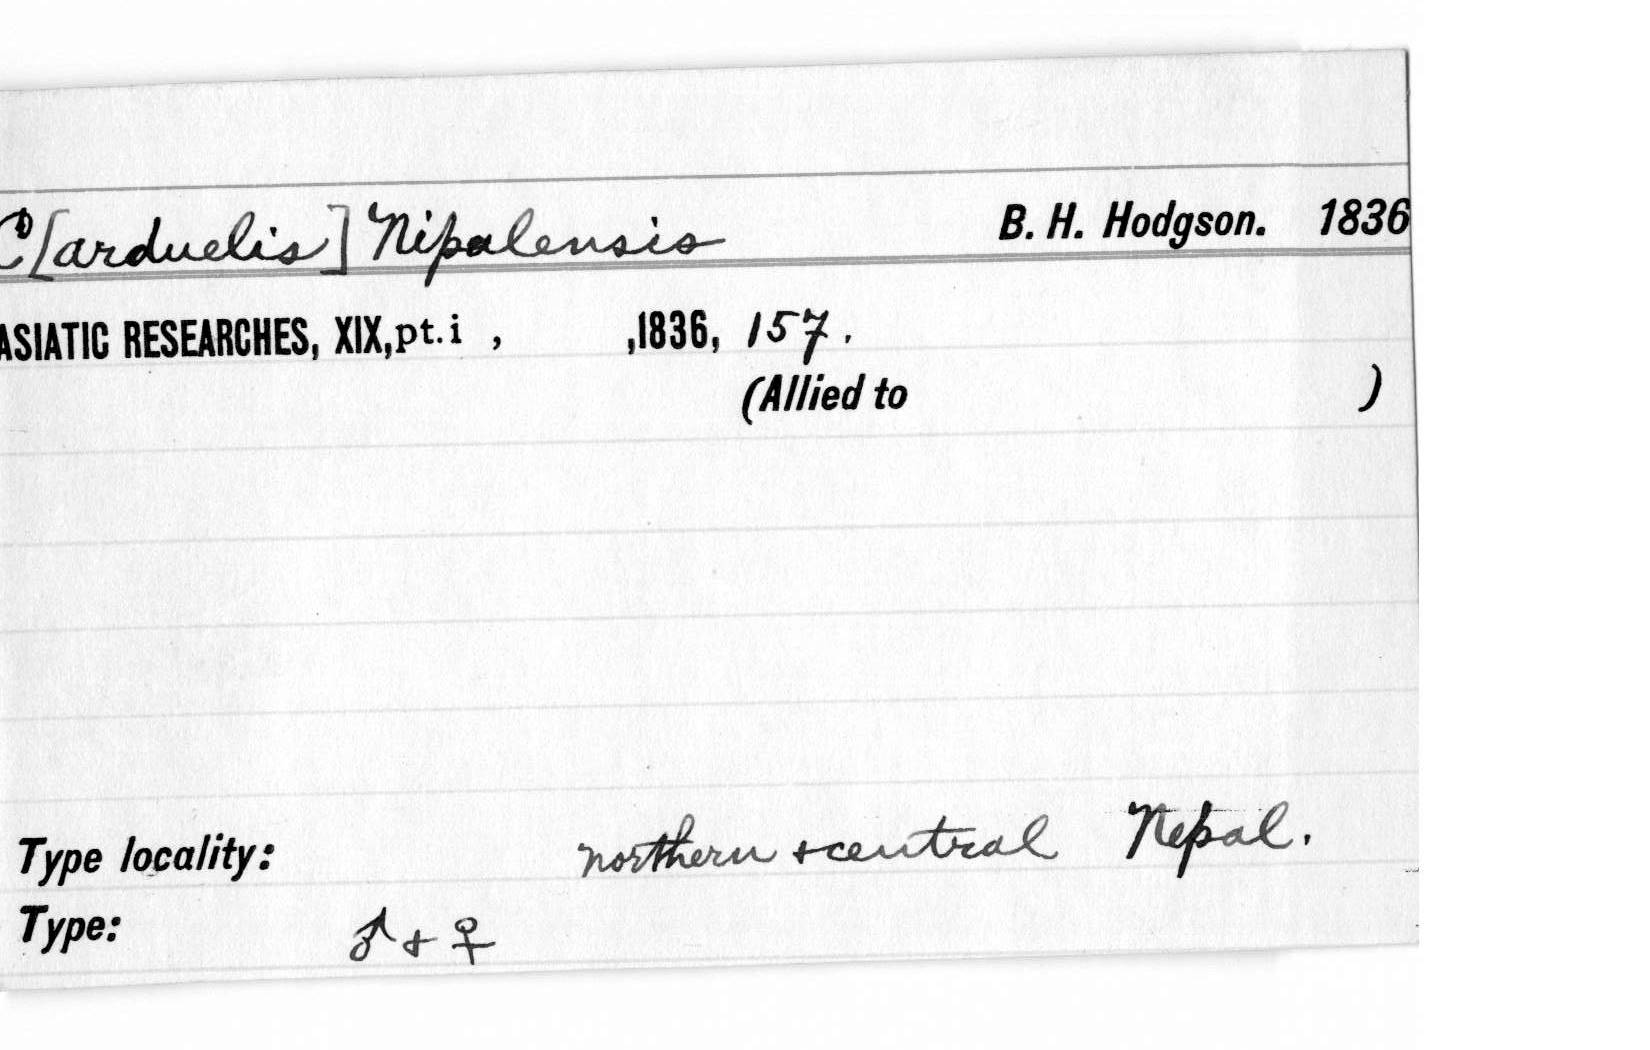 C[arduelis] Nipalensis B. H. Hodgson. 1836
ASIATIC RESEARCHES, XIX, pt. i , ,1836, 157.
(Allied to )
Type locality: northern & central Nepal.
Type: ♂ & ♀